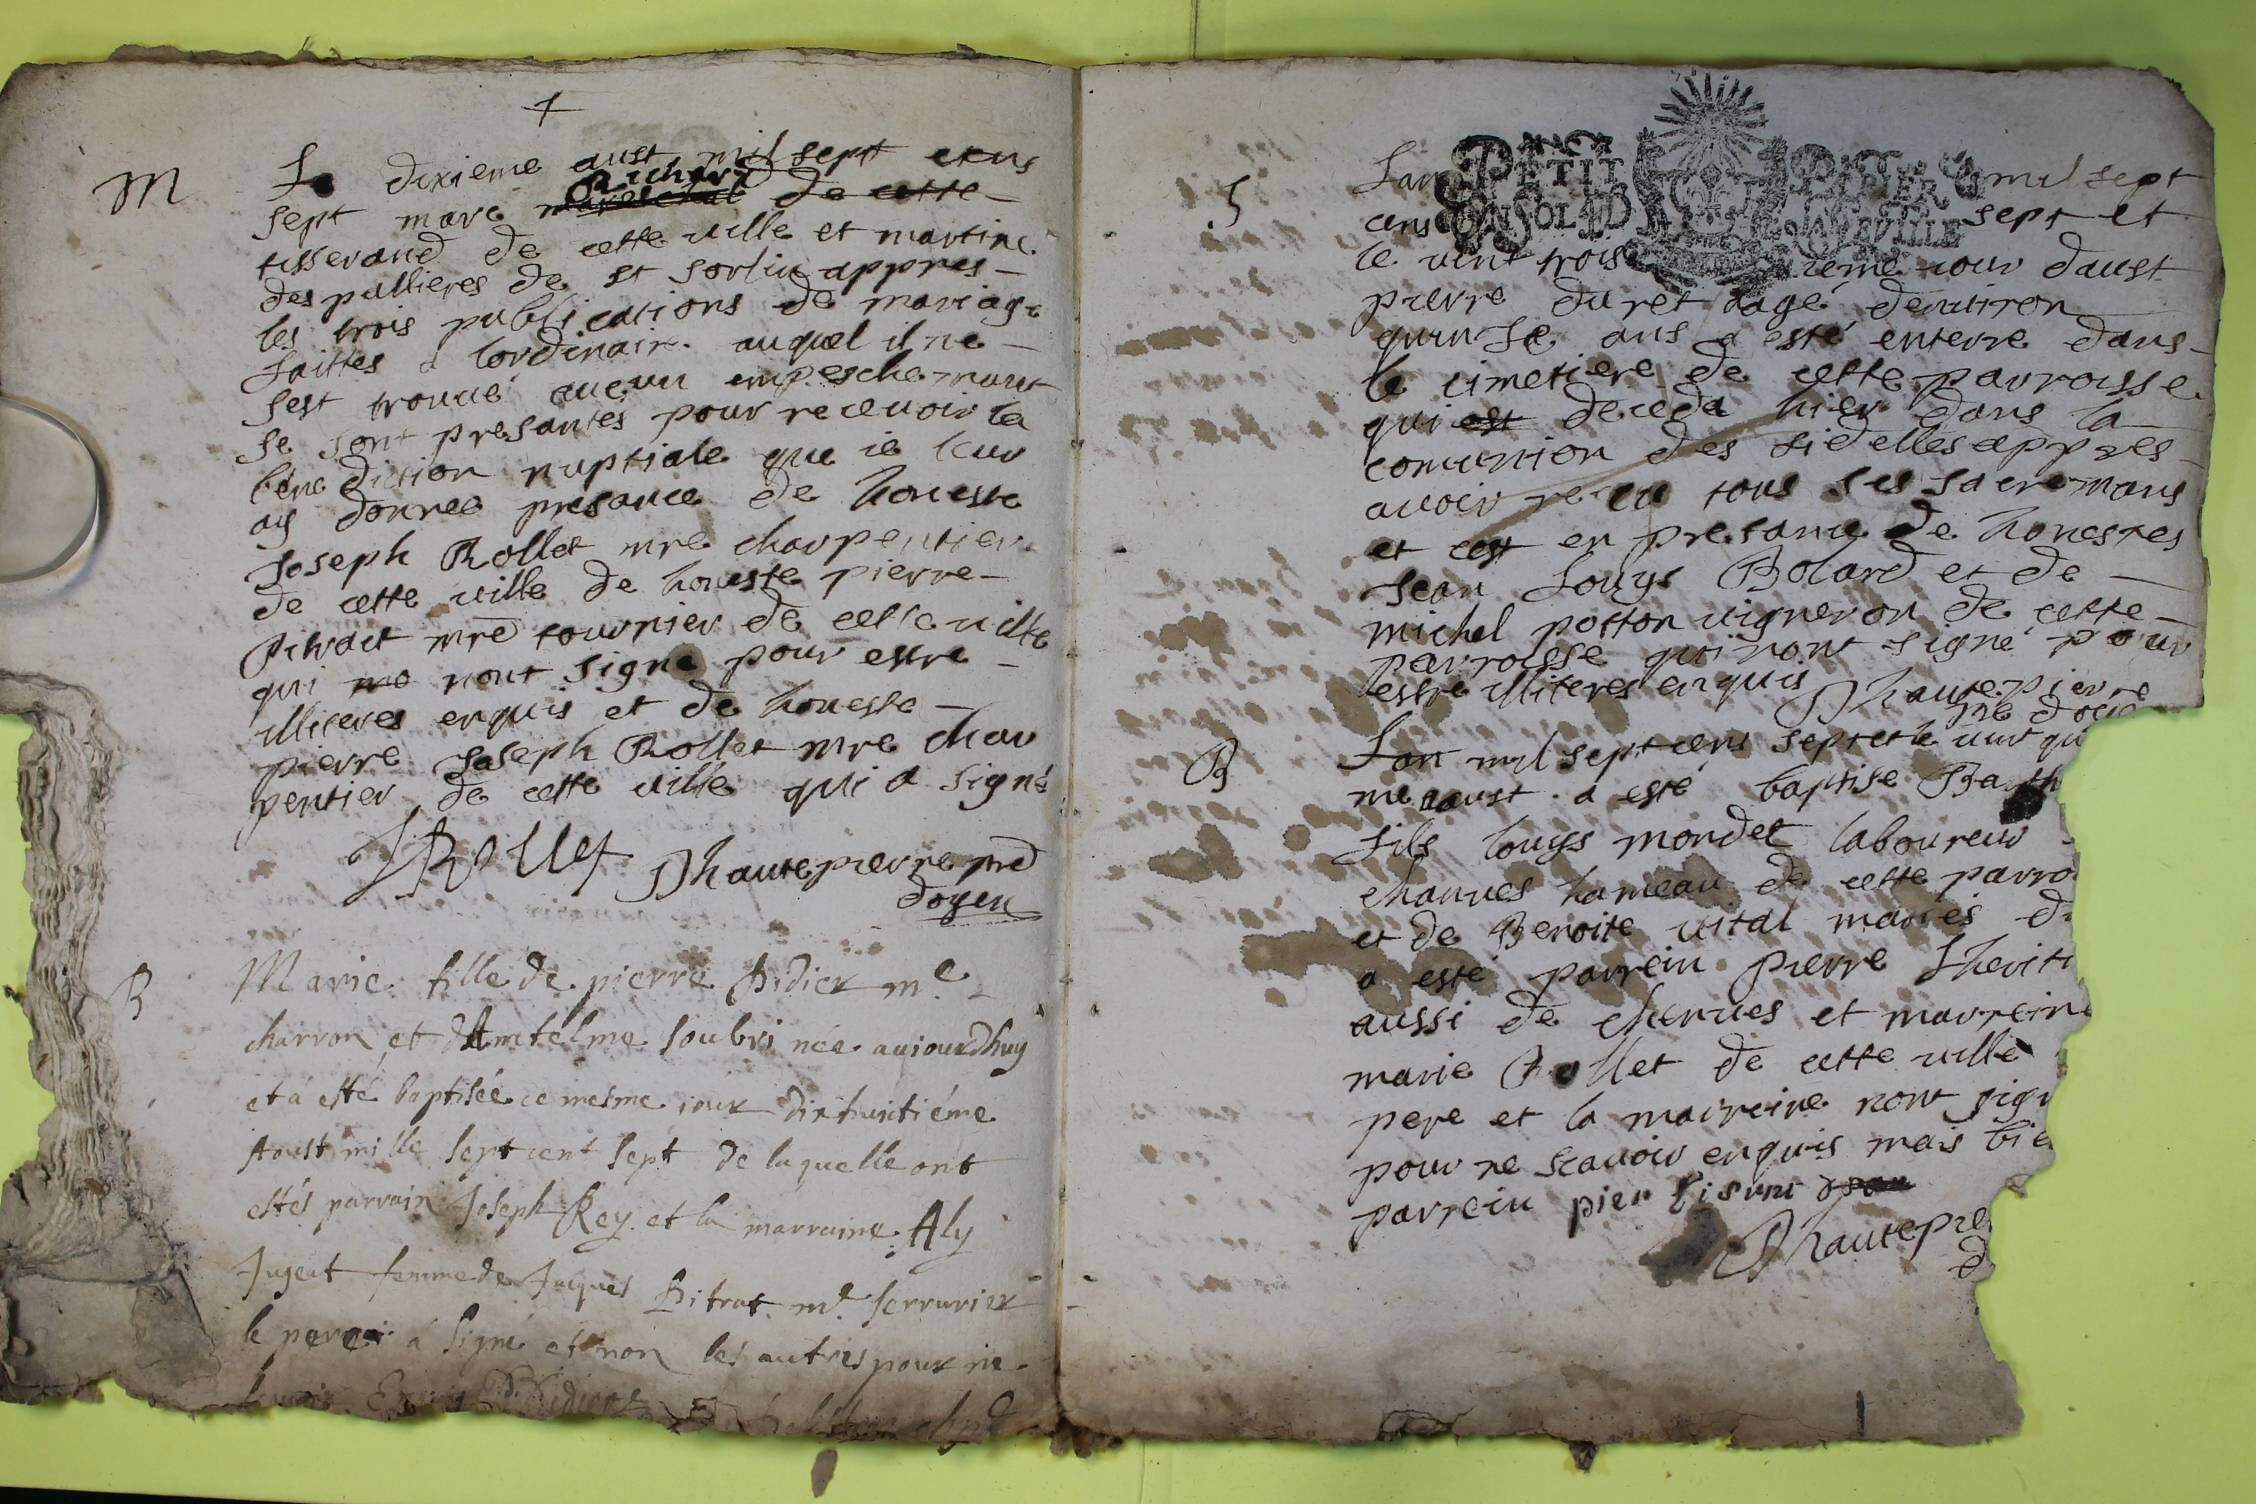 M
Le dixieme aust mil sept cens
sept marc Richard de cette
tisserand de cette ville et martine
despallieres de st sorlin appres
les trois publications de mariage
faittes a lordinaire auquel il ne
sest trouué aucun empeschemant
se sont presantes pour receuoir la
benediction nuptiale que ie leur
ay donnee presance de honeste
Joseph Rollet mre charpentier
de cette ville de honeste pierre
Pitrait mre tournier de cette ville
qui nont signe pour estre
illiteres enquis et de honeste
pierre Joseph Rollet mre char
pentier de cette ville qui a signé
JRollet Dhautepierre pre
doyen
B
Marie fille de pierre Didier me
charron et dAntelme Soubri née aujourdhuy
et à esté baptisée ce mesme iour dixhuictiéme
Aoust mille sept cent sept de laquelle ont
estés parrain Joseph Rey et la marraine Aly
Jugeat femme de Jaques Pitrat me serrurier
le parrai à signé et non les autres pour ne
scauoir Enquis Didier
S
PETIT PAPIER
UN SOL LA FEUILLE
Lan mil sept
cens sept et
le vint trois ieme iour daust
pierre duret aagé denuiron
quinse ans a esté enterre dans
le cimetiere de cette parroisse
qui est deceda hier dans la
comunion des fidelles appres
auoir receu tous ses sacremans
et cest en presance de honestes
Jean Louys Bolard et de
michel potton vigneron de cette
parroisse qui nont signé pour
estre illiteres enquis Dhautepierre
pre doye
B
Lan mil sept cens sept et le vint qu
me aust a esté baptise Barth
fils louys mondet laboureur
charues hameau de cette parro
et de Benoite vital mariés d
a esté parrein pierre Lheriti
aussi de cherues et marreine
marie Rollet de cette ville
pere et la marreine nont sign
pour ne scauoir enquis mais bie
parrein pier
Dhautepie
d